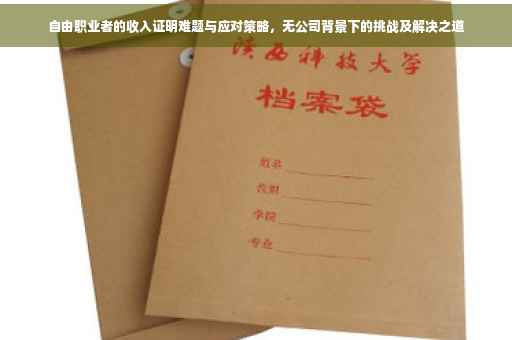 自由职业者的收入证明难题与应对策略，无公司背景下的挑战及解决之道
陕西科技大学
档案袋
姓名
学院
专业